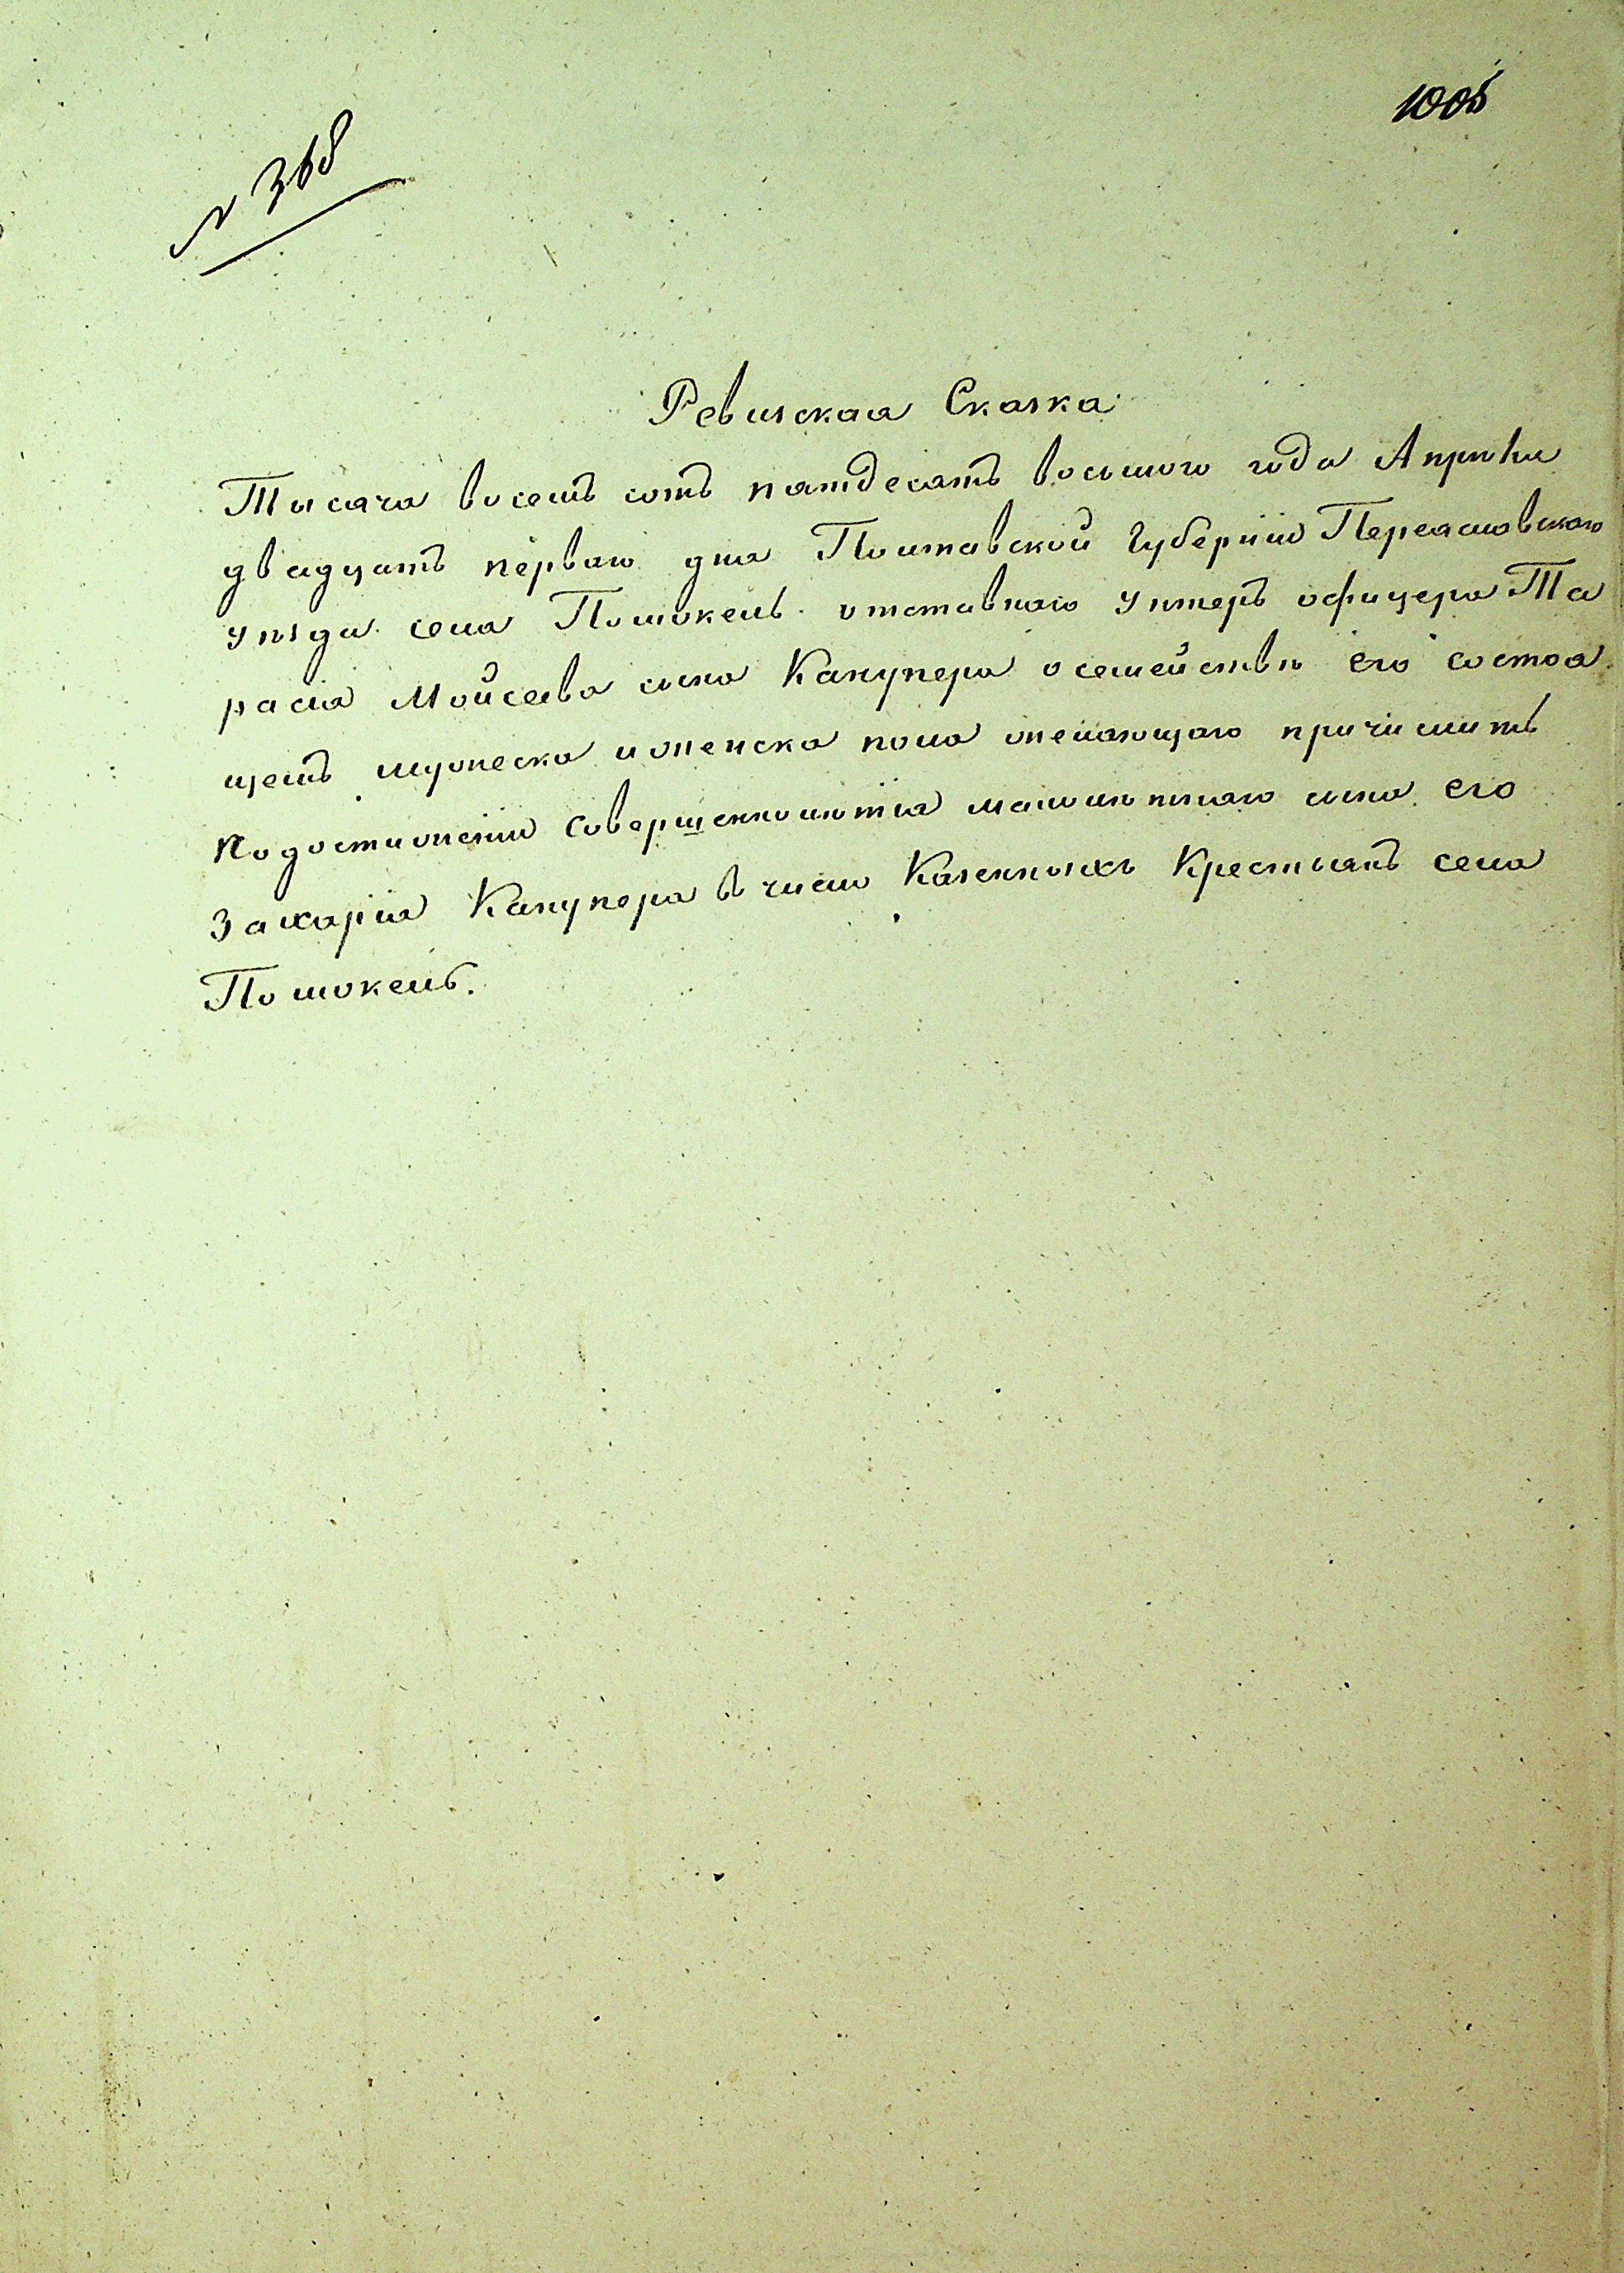 1005
№ 368
Ревизская Сказка
Тысяча восемь сотъ пятдесятъ восьмого года Апрѣля
двадцать перваго дня Полтавской Губерніи Переяславскаго
уѣзда села Положекъ отставнаго Унтеръ офицера Та
расія Мойсеева сына Канупера о семействѣ его состоя
щемъ мужеска и женска пола желающаго причислить
по достиженіи совершеннолѣтія малолѣтнаго сына его
Захарія Канупера в число Казенныхъ Крестьянъ села